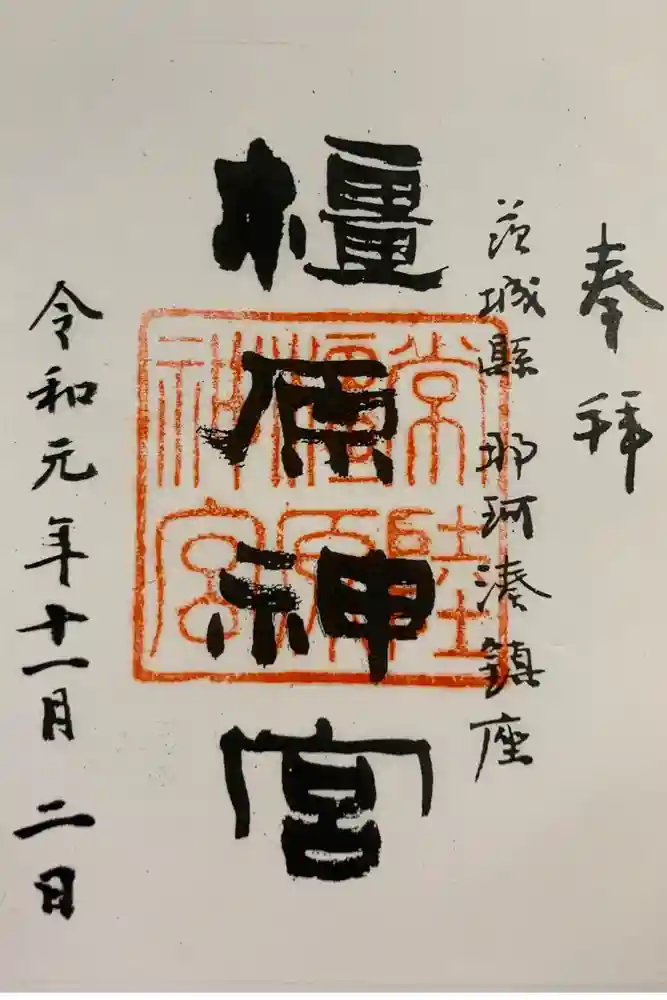 奉拝
茨城縣 那珂湊鎮座
橿原神宮
常陸
橿原
神宮
令和元年十一月 二日